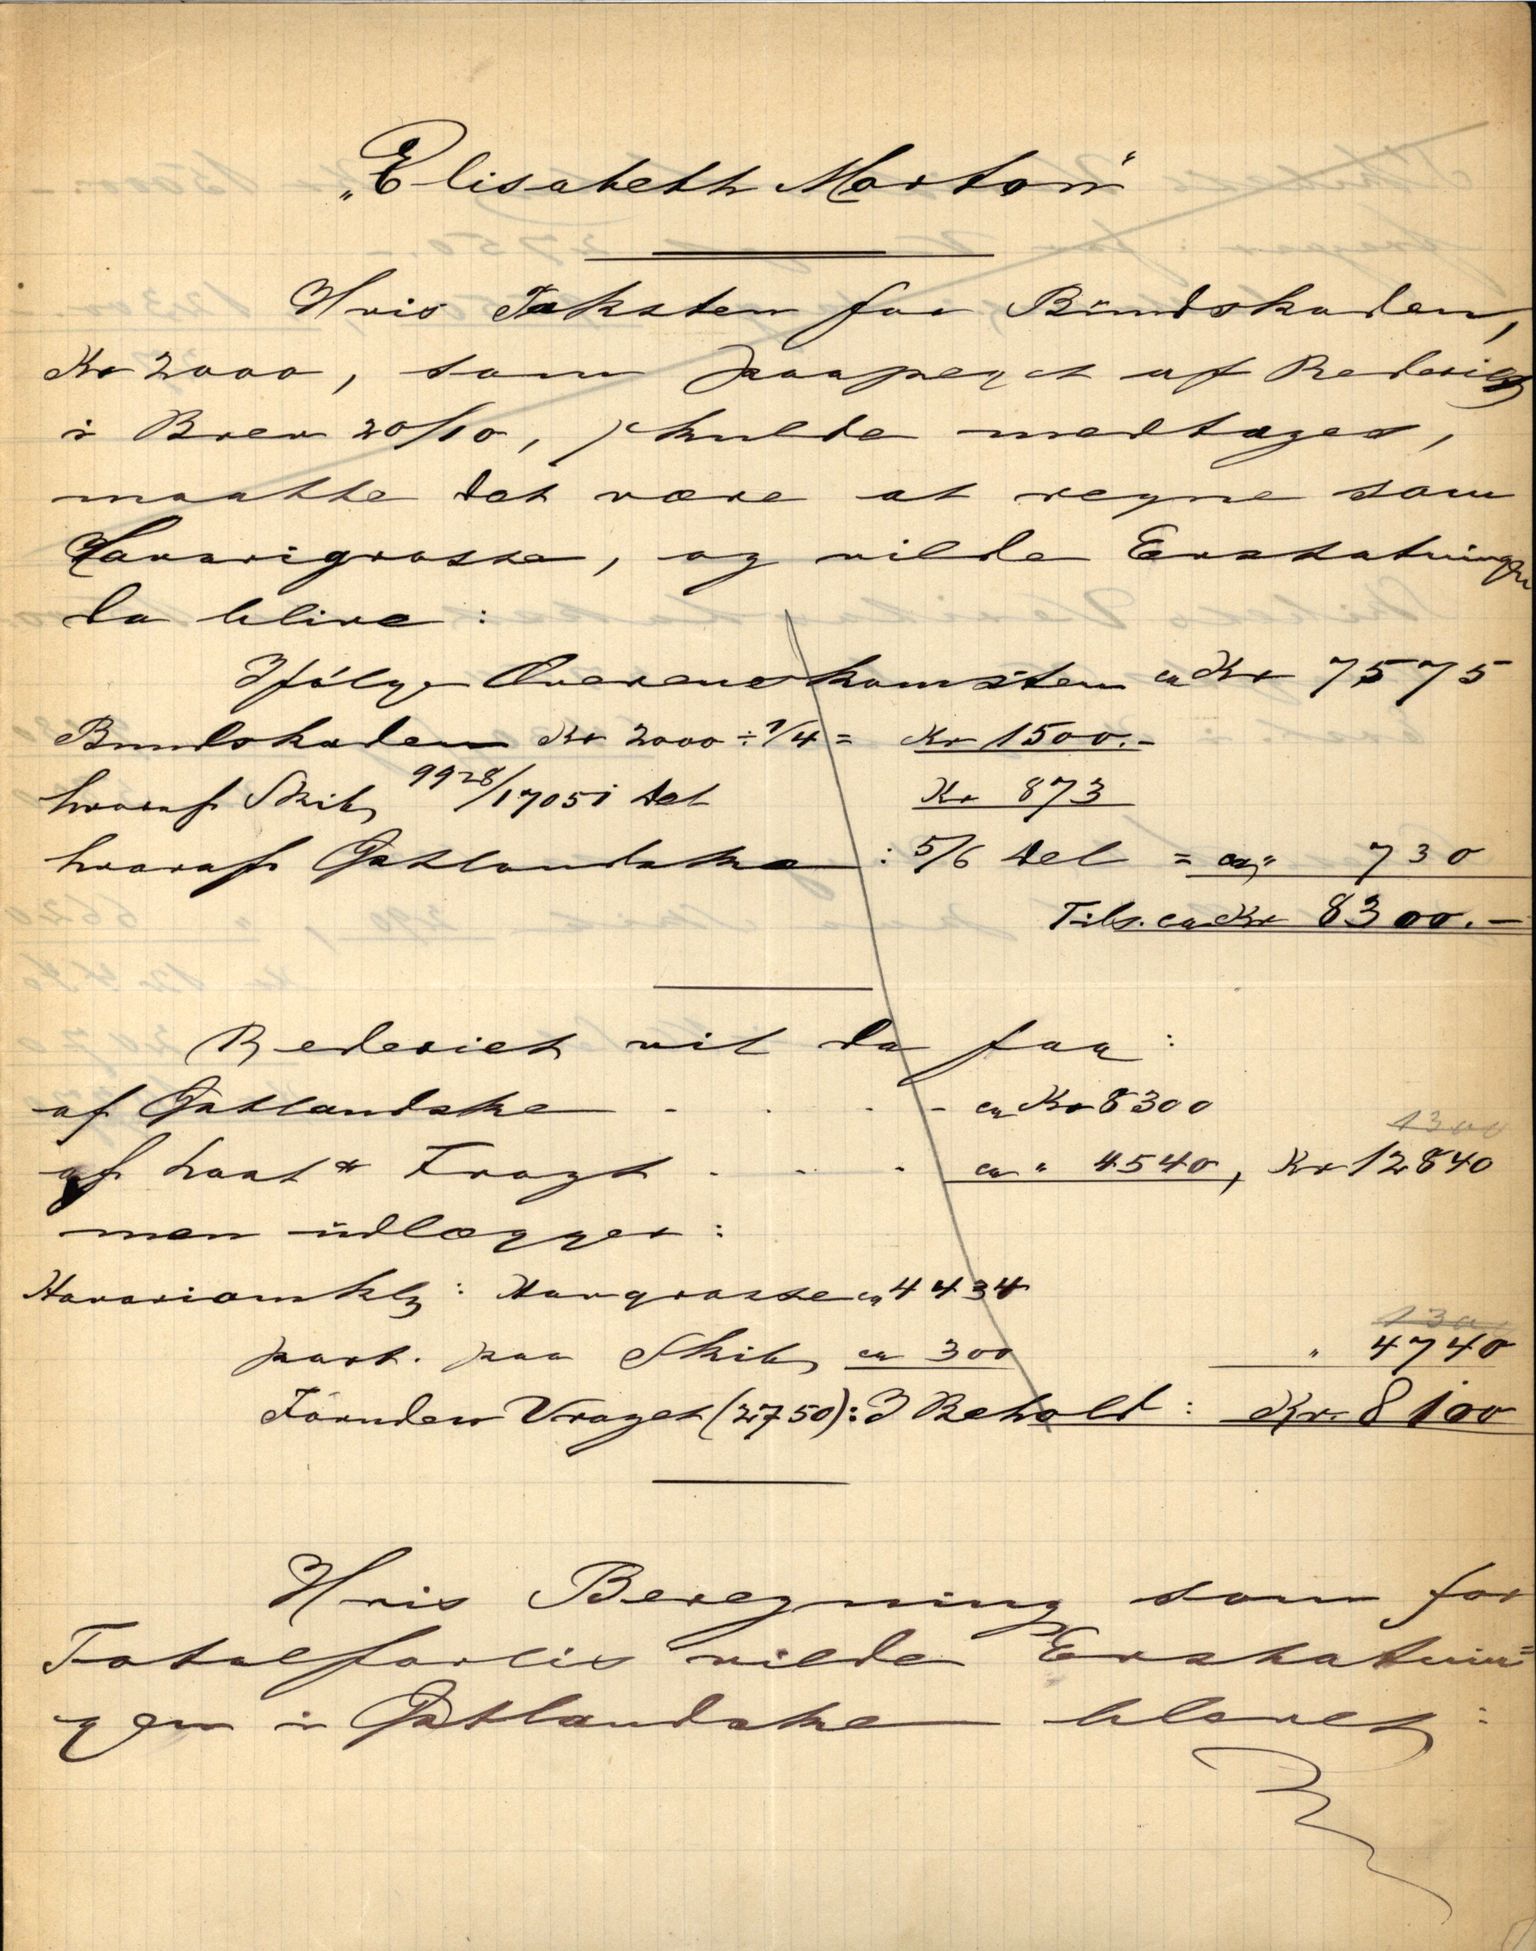 „Elisabeth Morton"
Hvis Taksten for Bundskaden,
Kr 2000, som paapeget af Rederiet
i Brev 20/10, skulde medtages,
maatte det være at regne som
Havarigrosse, og vilde Erstatningen
da blive:
Ifølge Overenskomsten ca Kr 7575
Bundskaden Kr 2000 ÷ 1/4 = Kr 1500.-
hvoraf Skib 9928/17051 del Kr 873
hvoraf Østlandske: 5/6 del = ca „ 730
Tils. ca Kr 8300.-
Rederiet vil da faa:
af Østlandske . . . - ca Kr 8300
1300
af Fragt . . . ca " 4540, Kr 12840
men udlægger:
Havariomk: Havgrosse ca 4434
130
part. paa Skib ca 300 " 4740
Foruden Vraget (2750): I Behold: Kr. 8100
Hvis Beregning som for
Totalforlis vilde Erstatnin=
gen i Østlandske blevet: